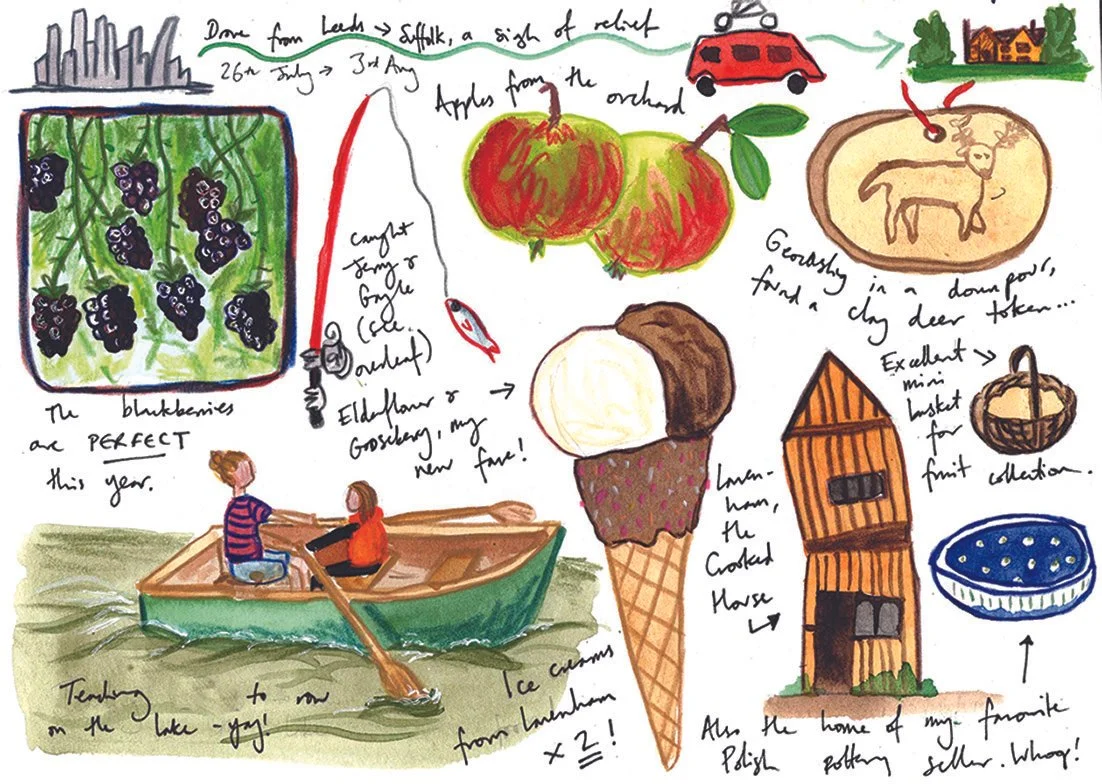 Drove from Leeds → Suffolk, a sigh of relief
26th July → 3rd Aug
Apples from the orchard
caught
Jerry &
Gayle
(see
overleaf)
Geocaching in a downpour,
found a clay deer token...
The blackberries
are PERFECT
this year.
Elderflower &
Gooseberry, my
new fave!
Excellent
mini
basket
for
fruit collection.
Laven-
ham,
the
Crooked
House
Teaching to row
on the lake - yay!
Ice creams
from Lavenham
x 2!
Also the home of my favourite
Polish pottery seller. Whoop!